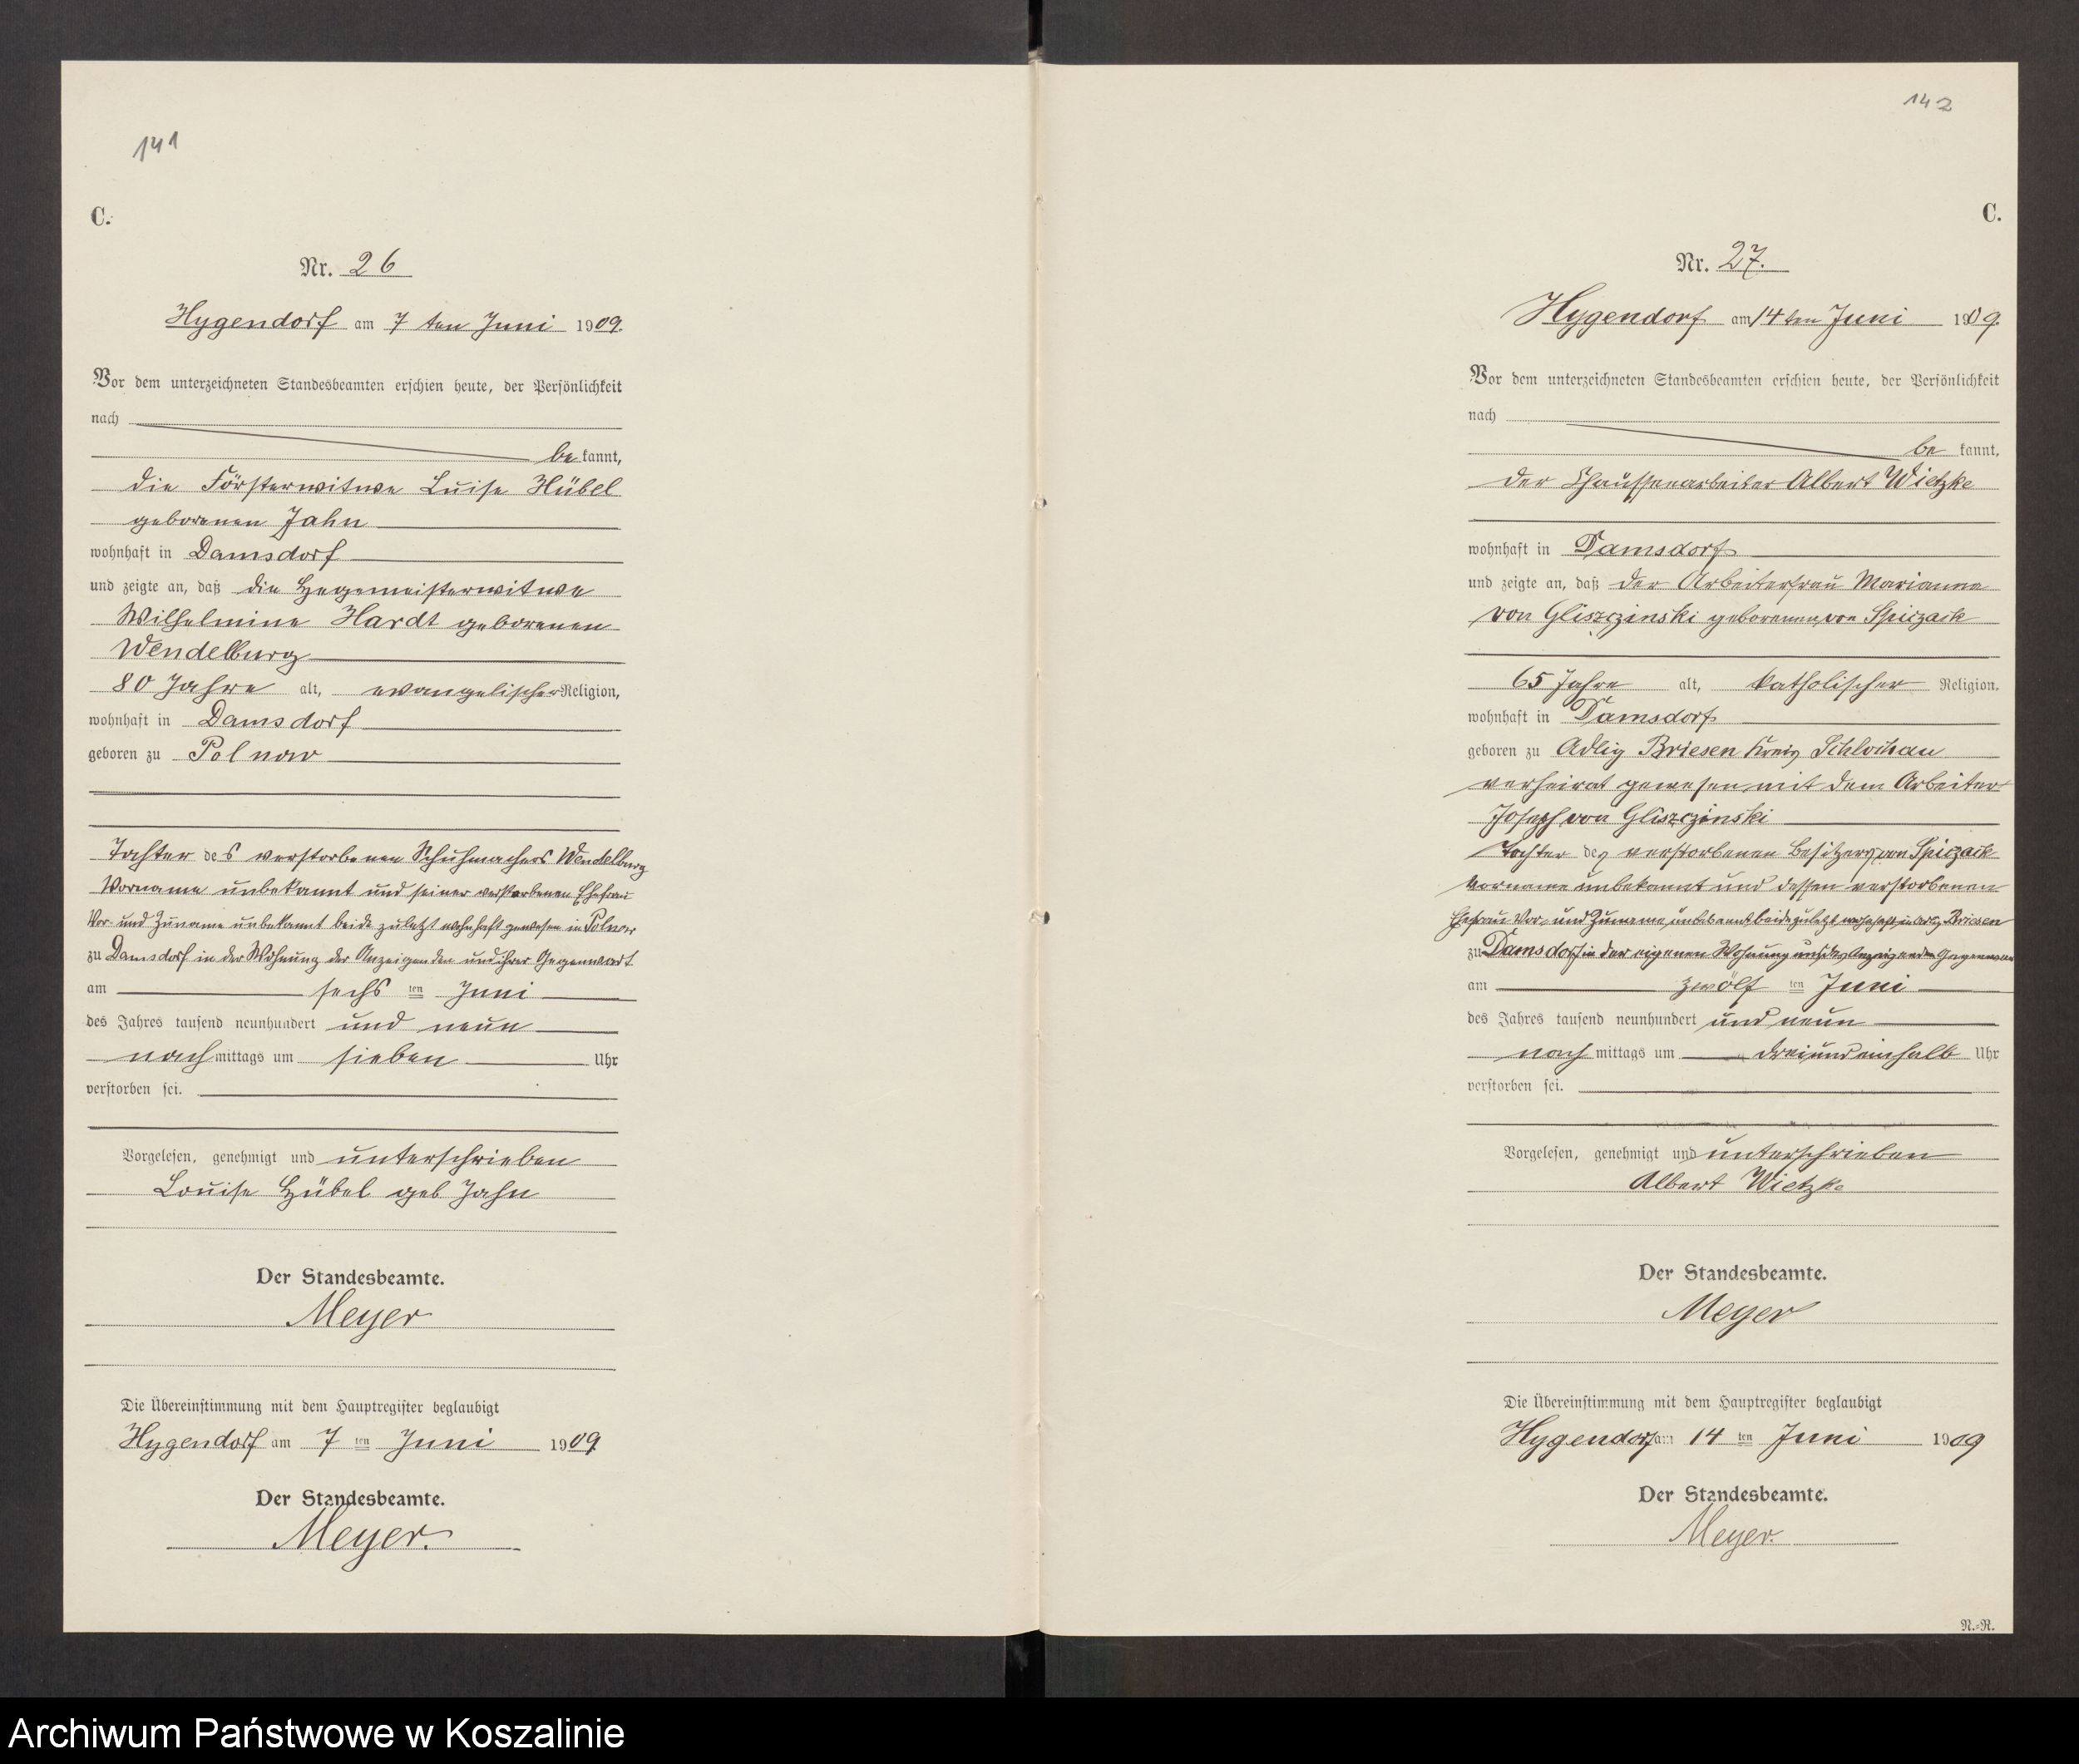 141
C.
Nr. 26
Hygendorf am 7 ten Juni 1909.
Vor dem unterzeichneten Standesbeamten erschien heute, der Persönlichkeit
nach
be kannt,
die Försterwitwe Luise Hübel
geborenen Jahn
wohnhaft in Damsdorf
und zeigte an, daß die Hegemeisterwitwe
Wilhelmine Hardt geborenen
Wendelburg
80 Jahre alt, evangelischer Religion,
wohnhaft in Damsdorf
geboren zu Polnow
Tochter des verstorbenen Schuhmachers Wendelburg
Vorname unbekannt und seiner verstorbenen Ehefrau
Vor- und Zuname unbekannt beide zuletzt wohnhaft gewesen in Polnow
zu Damsdorf in der Wohnung der Anzeigenden und ihrer Gegenwart
am sechs ten Juni
des Jahres tausend neunhundert und neun
nachmittags um sieben Uhr
verstorben sei.
Vorgelesen, genehmigt und unterschrieben
Louise Hübel geb Jahn
Der Standesbeamte.
Meyer
Die Übereinstimmung mit dem Hauptregister beglaubigt
Hygendorf am 7 ten Juni 1909
Der Standesbeamte.
Meyer.
142
C.
Nr. 27.
Hygendorf am 14 ten Juni 1909.
Vor dem unterzeichneten Standesbeamten erschien heute, der Persönlichkeit
nach
be kannt,
der Chausseearbeiter Albert Wietzke
wohnhaft in Damsdorf
und zeigte an, daß der Arbeiterfrau Marianna
von Gliszczinski geborenen von Spiczack
65 Jahre alt, katholischer Religion,
wohnhaft in Damsdorf
geboren zu Adlig Briesen Kreis Schlochau
verheirat gewesen mit dem Arbeiter
Joseph von Gliszczinski
Tochter des verstorbenen Besitzers von Spiczack
Vorname unbekannt und dessen verstorbenen
Ehefrau Vor- und Zuname unbekannt beide zuletzt wohnhaft in Adlg Briesen
zu Damsdorf in der eigenen Wohnung und des Anzeigenden Gegenwart
am zwölf ten Juni
des Jahres tausend neunhundert und neun
nach mittags um dreiundeinhalb Uhr
verstorben sei.
Vorgelesen, genehmigt und unterschrieben
Albert Wietzke
Der Standesbeamte.
Meyer
Die Übereinstimmung mit dem Hauptregister beglaubigt
Hygendorf am 14 ten Juni 1909
Der Standesbeamte.
Meyer.
N.-N.
Archiwum Państwowe w Koszalinie